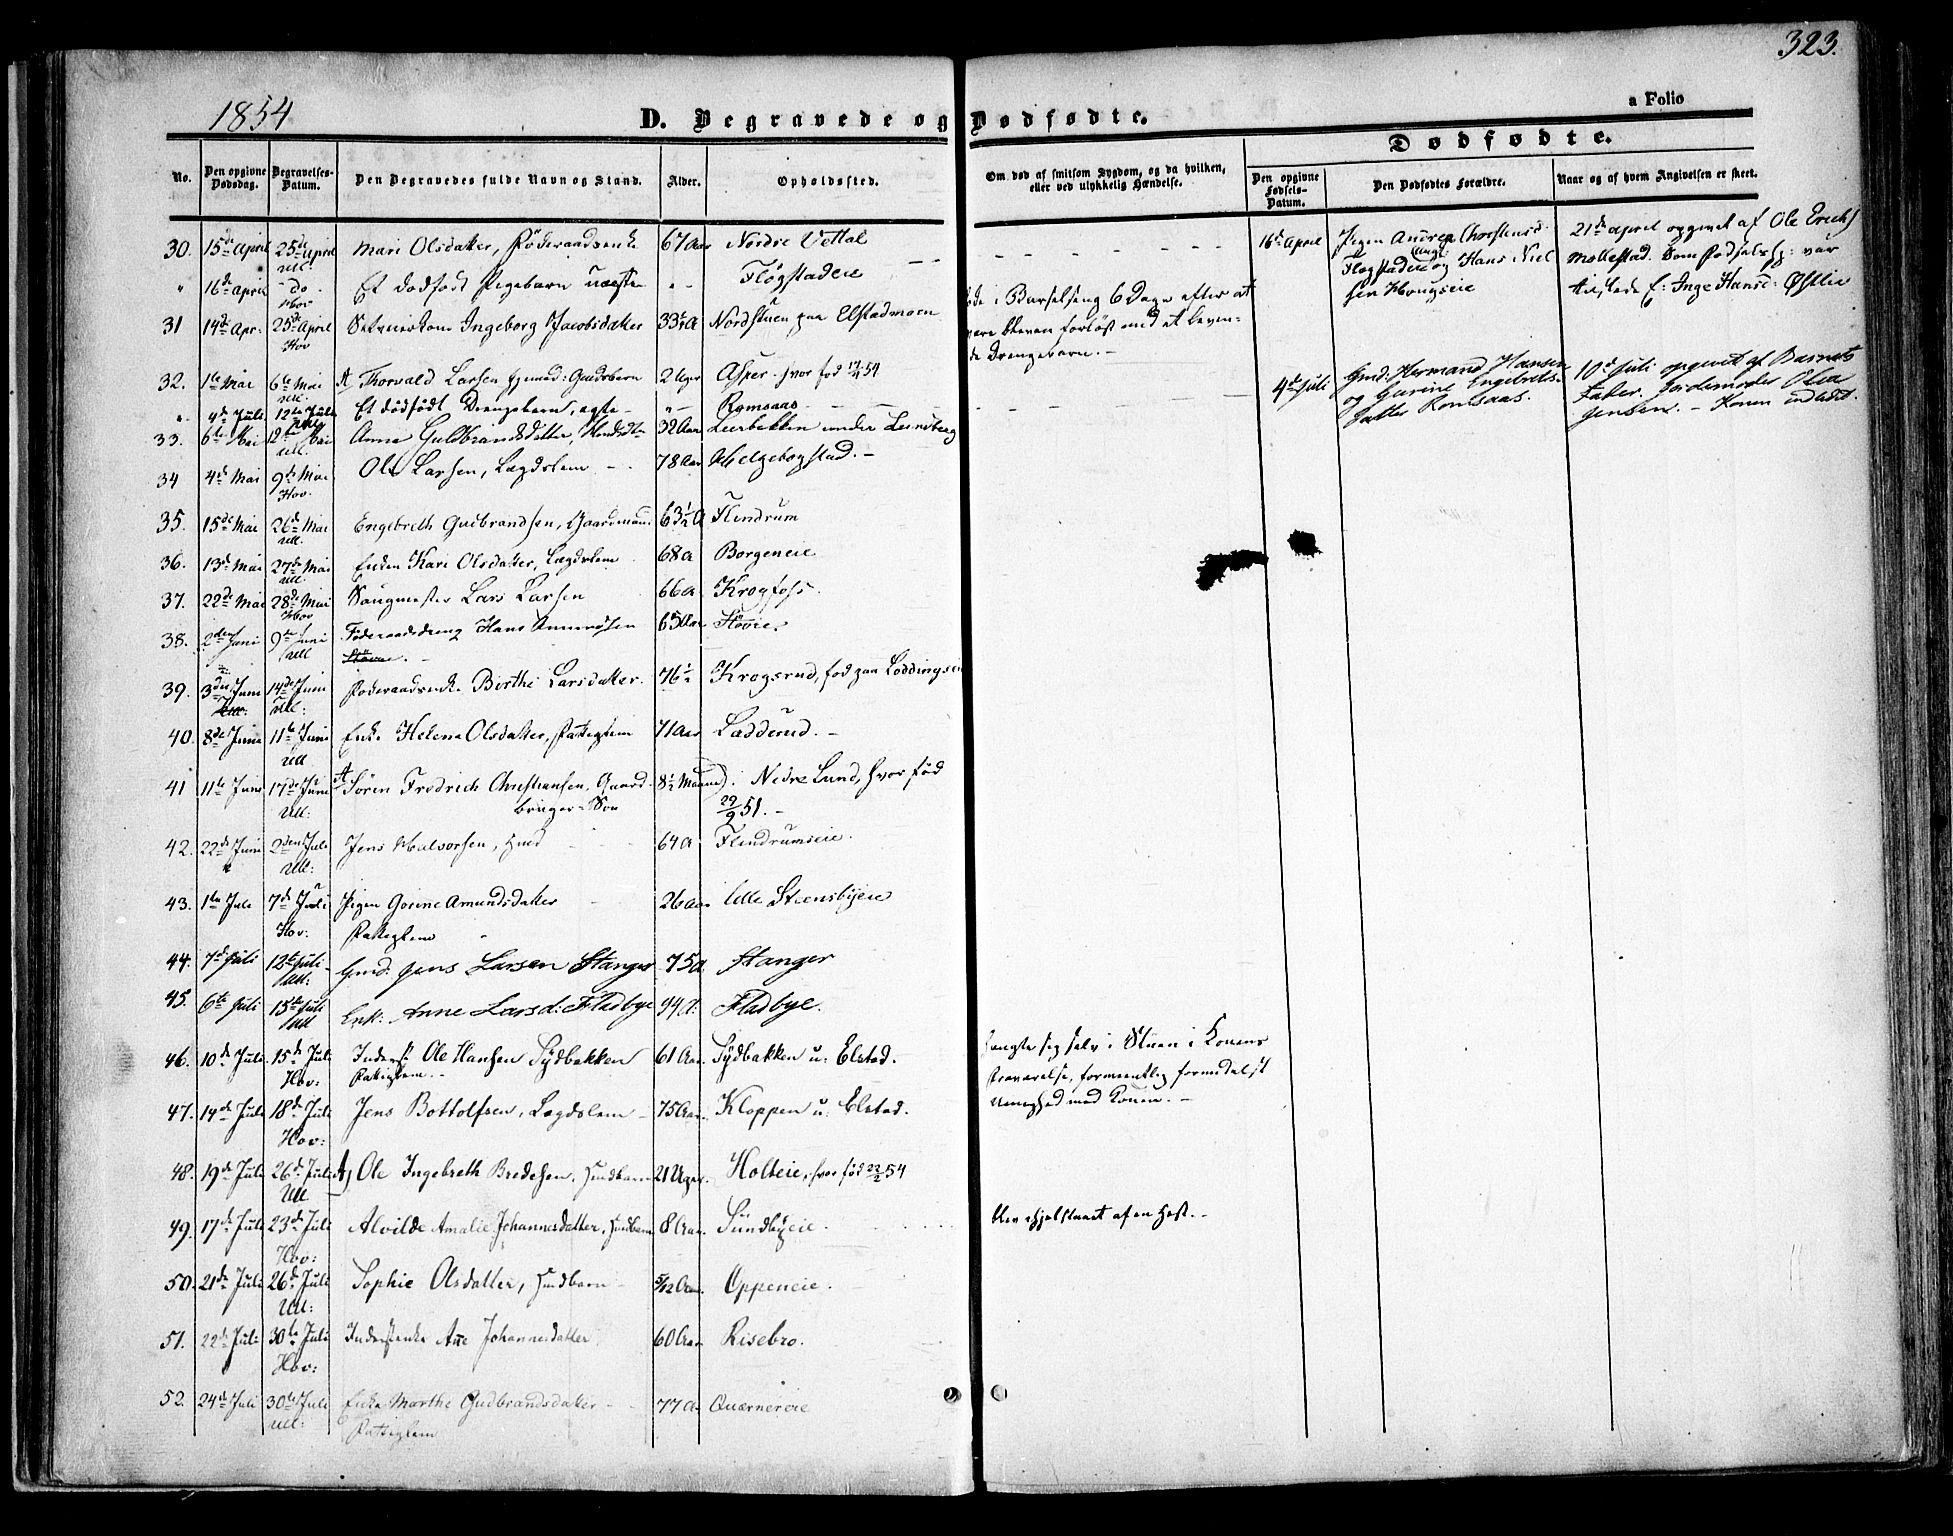 323.
1854
D. Begravede og Dødfødte.
a Folio
Dødfødte.
No.
Den opgivne Dødsdag.
Begravelses-Datum.
Den Begravedes fulde Navn og Stand.
Alder.
Opholdssted.
Om død af smitsom Sygdom, og da hvilken, eller ved ulykkelig Hændelse.
Den opgivne Fødsels-Datum.
Den Dødfødtes Forældre.
Naar og af hvem Angivelsen er skeet.
30. 15de April 25de April Mari Olsdatter, Føderaadsenke 67 Aar Nordre Vettal
Ull.
16de April Pigen Andrea Christensd.
Flogstadeie og Hans Niel
sen Hougseie
21de April opgivet af Ole Erichs
Mollestad. Som Fødselshj: var
tilstede E: Inge Hansd: Østlie
" 16de April do Et dødfødt Pigebarn uægte " - Flogstadeie
Hov
31 14de Apr: 25de April Ingeborg Jacobsdatter 33 A Nordstuen paa Elstadmoen
Hov
døde i Barselseng 6 Dage efter at
være bleven forløst med et leven-
de Drengebarn. -
32. 1te Mai 6te Mai A Thorvald Larsen Gaardbarn 2 Uger Asper hvor fød 17/4 54
Ull.
" 4de Juli 12te Juli Et dødfødt Drengebarn, ægte - " - Romsaas
4de Juli Gmd: Hermand Hansen
og Gurine Engebrets-
datter Romsaas.
10de Juli opgivet af Barnets
Fader. Jordemoder Olea
Jensen. - Konen indladt.
33. 6te Mai 12te Mai Anne Guldbrandsdatter, 32 Aar Leerbakken under Lundberg
Ull.
34 4de Mai 9de Mai Ole Larsen, Lægdslem - 78 Aar Helgebogstad. -
Hov.
35. 15de Mai 26de Mai Engebreth Gudbrandsen, Gaardmand 63½ A Flindrum
Ull.
36. 13de Mai 27de Mai Enken Kari Olsdatter, Lægdslem 68 A Borgeneie
Ull
37. 22de Mai 28de Mai Saugmester Lars Larsen 66 A Krogfoss.
Hov
38. 2den Juni 9de Juni Føderaadsdreng Hans Amundsen 65 Aar Hovie.
Ull
39. 3die Juni 14de Juni Føderaadsenke Birthe Larsdatter. 76½ Krogsrud, fød paa Loddingseie
Ull:
40. 8de Juni 11te Juni Enke Helene Olsdatter, Fattiglem 71 Aar Lødderud. -
Ull
41 11te Juni 17de Juni A Søren Fredrich Christiansen, Gaard- 8½ Maaned. Nedre Lund, hvor fød
Ull: bruger-Søn 29/9 51. -
42. 22de Juni 2den Juli Jens Halvorsen, Gmd 64 A Flindrumseie.
Ull:
43. 1te Juli 7de Juli Pigen Gorine Amundsdatter 26 Aar. lille Steensbyeie
Hov: Fattiglem
44. 7de Juli 12te Juli. Gmd: Jens Larsen Stanger 75 A Stanger
Ull:
45. 6te Juli 15te Juli Enk: Anne Larsd: Fladbye 94 A. Fladbye.
Ull
46. 10de Juli. 15de Juli Inderst Ole Hansen Sydbakken 61 Aar. Sydbakken u: Elstad.
Hov: Fattiglem. -
hængte sig selv i Stuen i Konens
Fraværelse, formeentlig formedelst
Uenighed med Konen. -
47. 14de Juli 18de Juli Jens Botholfsen, Lægdslem 75 Aar. Kloppen u: Elstad.
Hov:
48. 19de Juli 26de Juli A) Ole Ingebreth Bredesen, Husdbarn 21 Uger. Holteie, hvor fød 22/2 54
Ull
49. 17de Juli 23de Juli Alvilde Amalie Johannesdatter, 8 Aar. Sundbyeie.
Hov:
blev ihjelslaaet af en Hest. -
50. 21de Juli 26de Juli Sophie Olsdatter, 5/12 Aar. Oppeneie.
Ull:
51. 22de Juli 30te Juli Inderstenke Ane Johannesdatter 60 Aar. Risebro.
Hov:
52. 24de Juli 30te Juli Enke Marthe Gudbrandsdatter 77 A. Quærnereie
Ull: Fattiglem